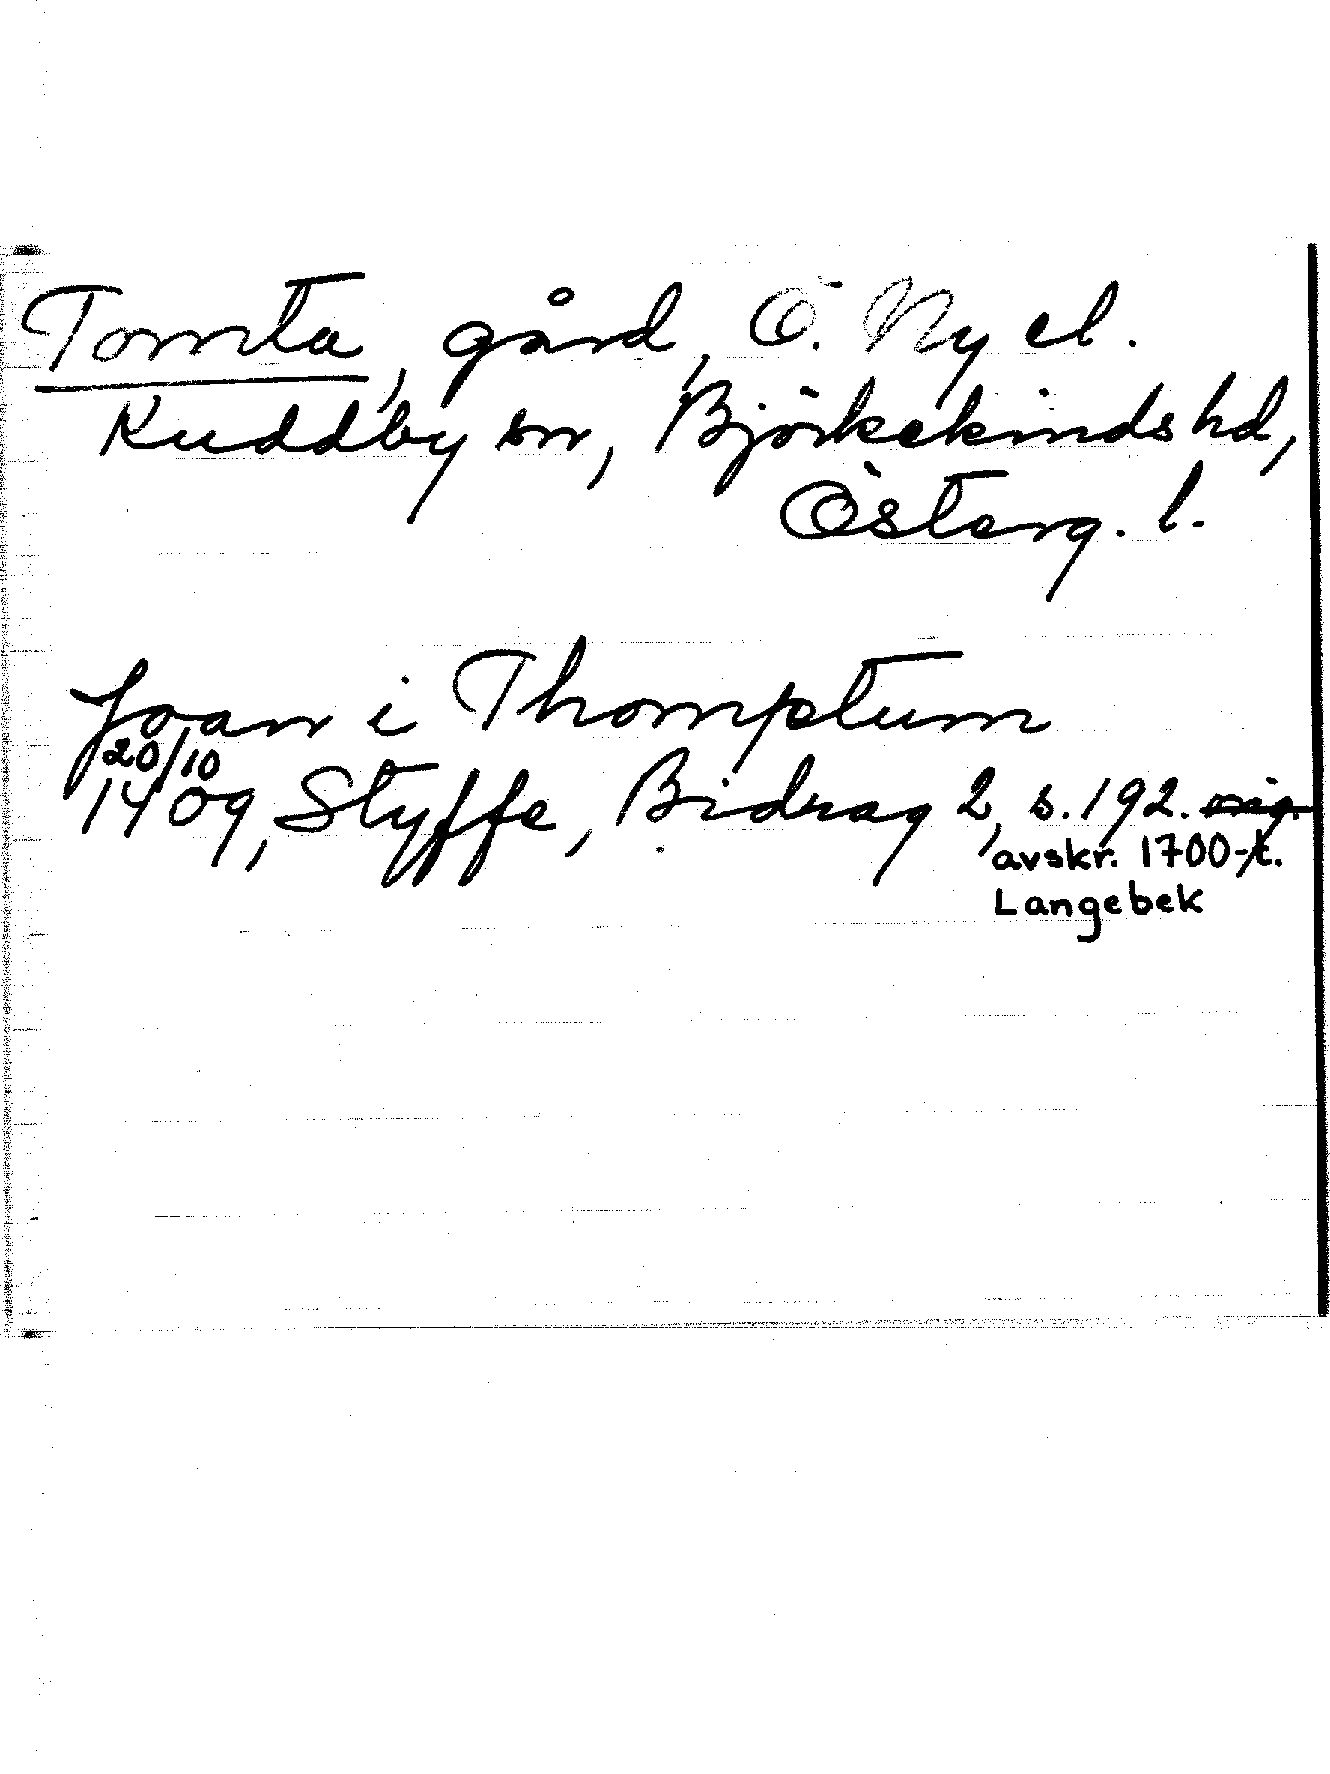 Tomta, gård, Ö. Ny el.
Kuddby sn, Björkekinds hd,
Österg. l.
Joan i Thomptum
20/10
1409, Styffe, Bidrag 2, s. 192. orig.
avskr. 1700-t.
Langebek